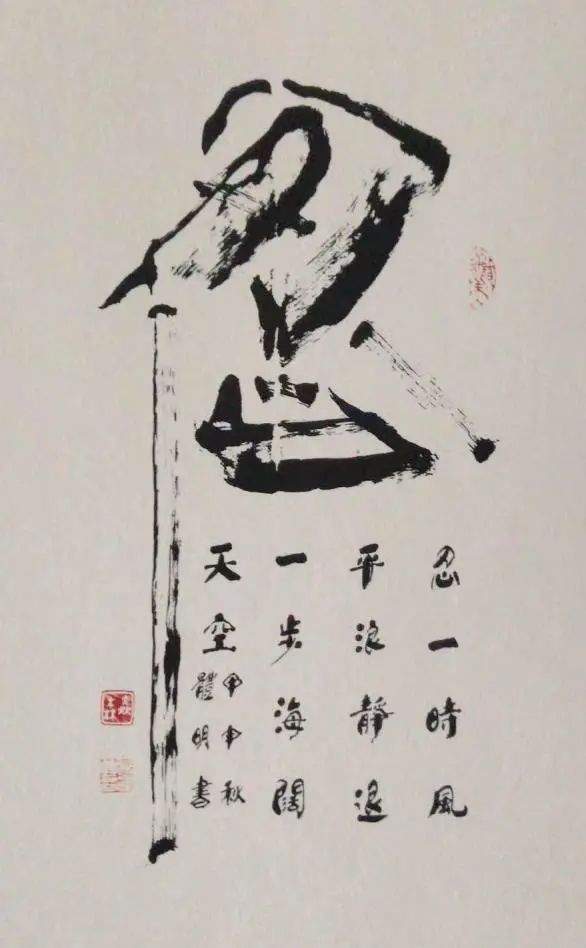 忍
忍一時風
平浪靜退
一步海闊
天空
甲申秋
體明書